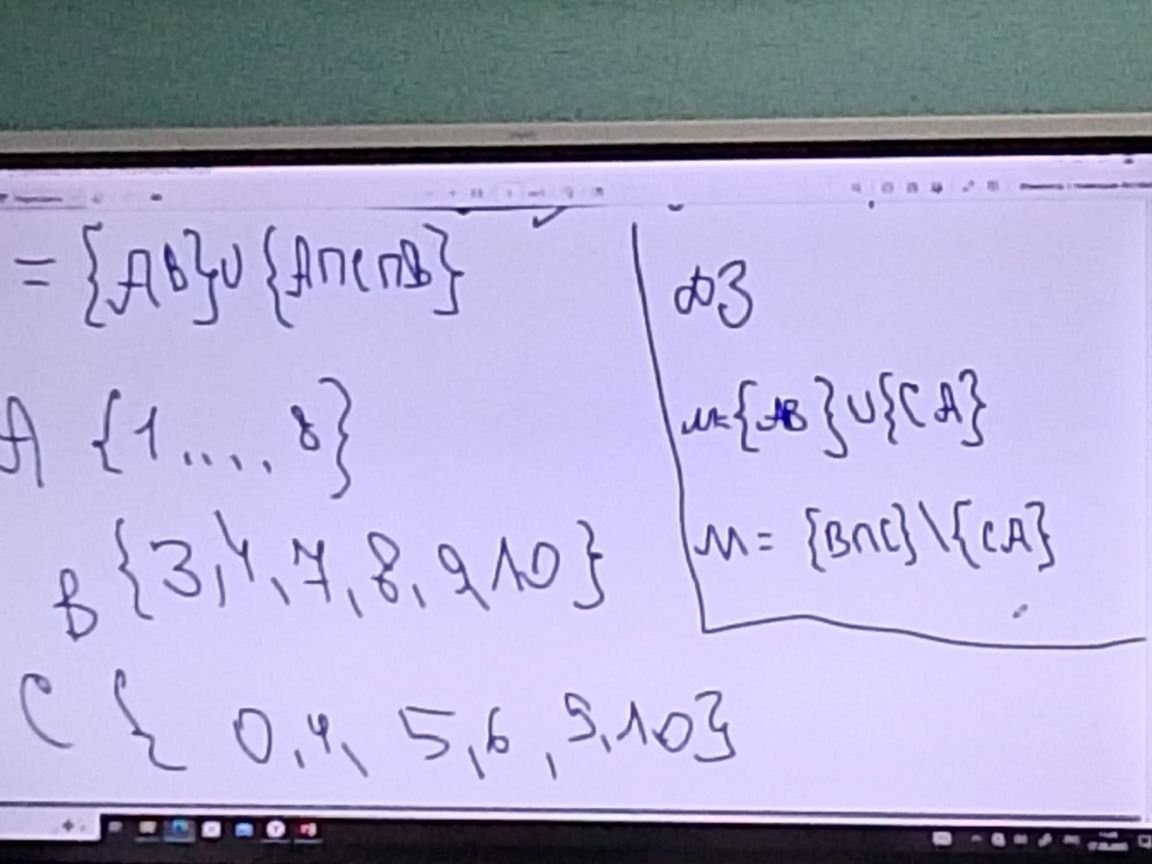 = {AB}∪{A∩C∩B}
A {1....8}
B {3,4,7,8,9,10}
C { 0,4, 5,6, 9,10}
ДЗ
M={AB}∪{CA}
M= {B∩C}\{CA}